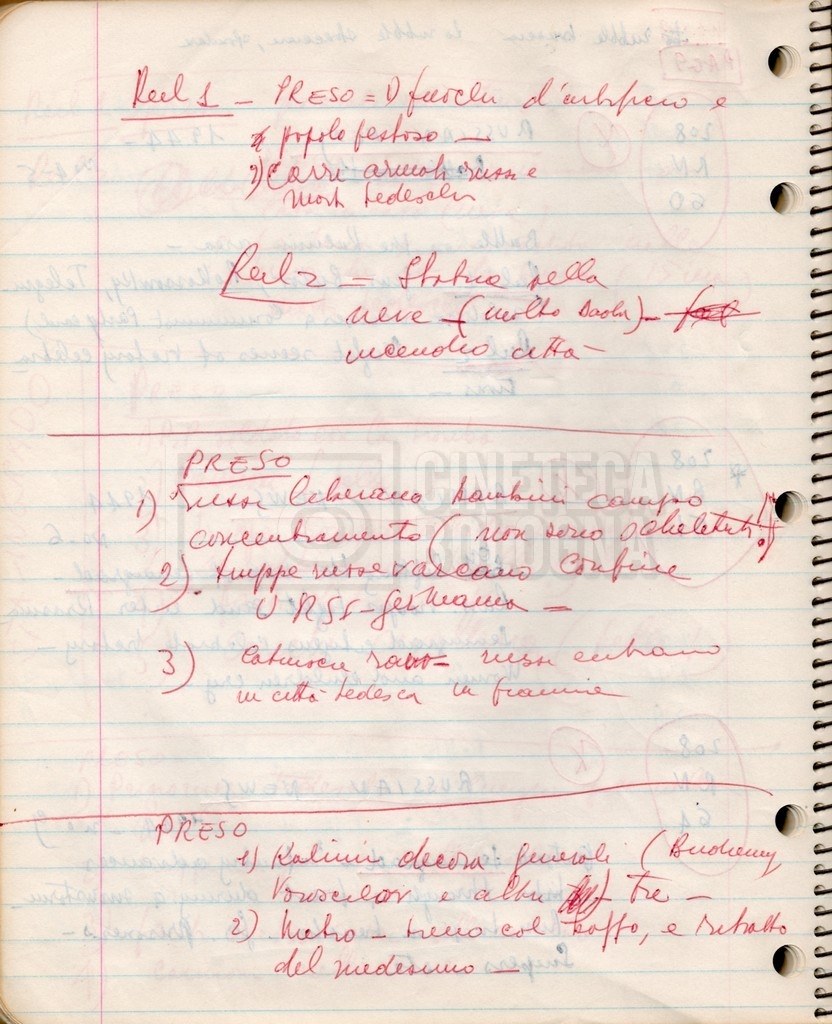 Reel 1 - PRESO = 1) fuochi d'artificio e
popolo festoso -
2) Carri armati russi e
morti tedeschi
Reel 2 - Statua nella
neve - (molto bella) -
incendio città -
PRESO
1) russi liberano bambini campo
concentramento (non sono scheletriti!!)
2) truppe russe varcano confine
URSS - germania -
3) Katiuscia russi entrano
in città tedesca in fiamme
CINETECA
BOLOGNA
PRESO
1) Kalinin decora generali (Budienny
Voroscilov e altri tre -
2) Metro - treno col baffo, e ritratto
del medesimo -